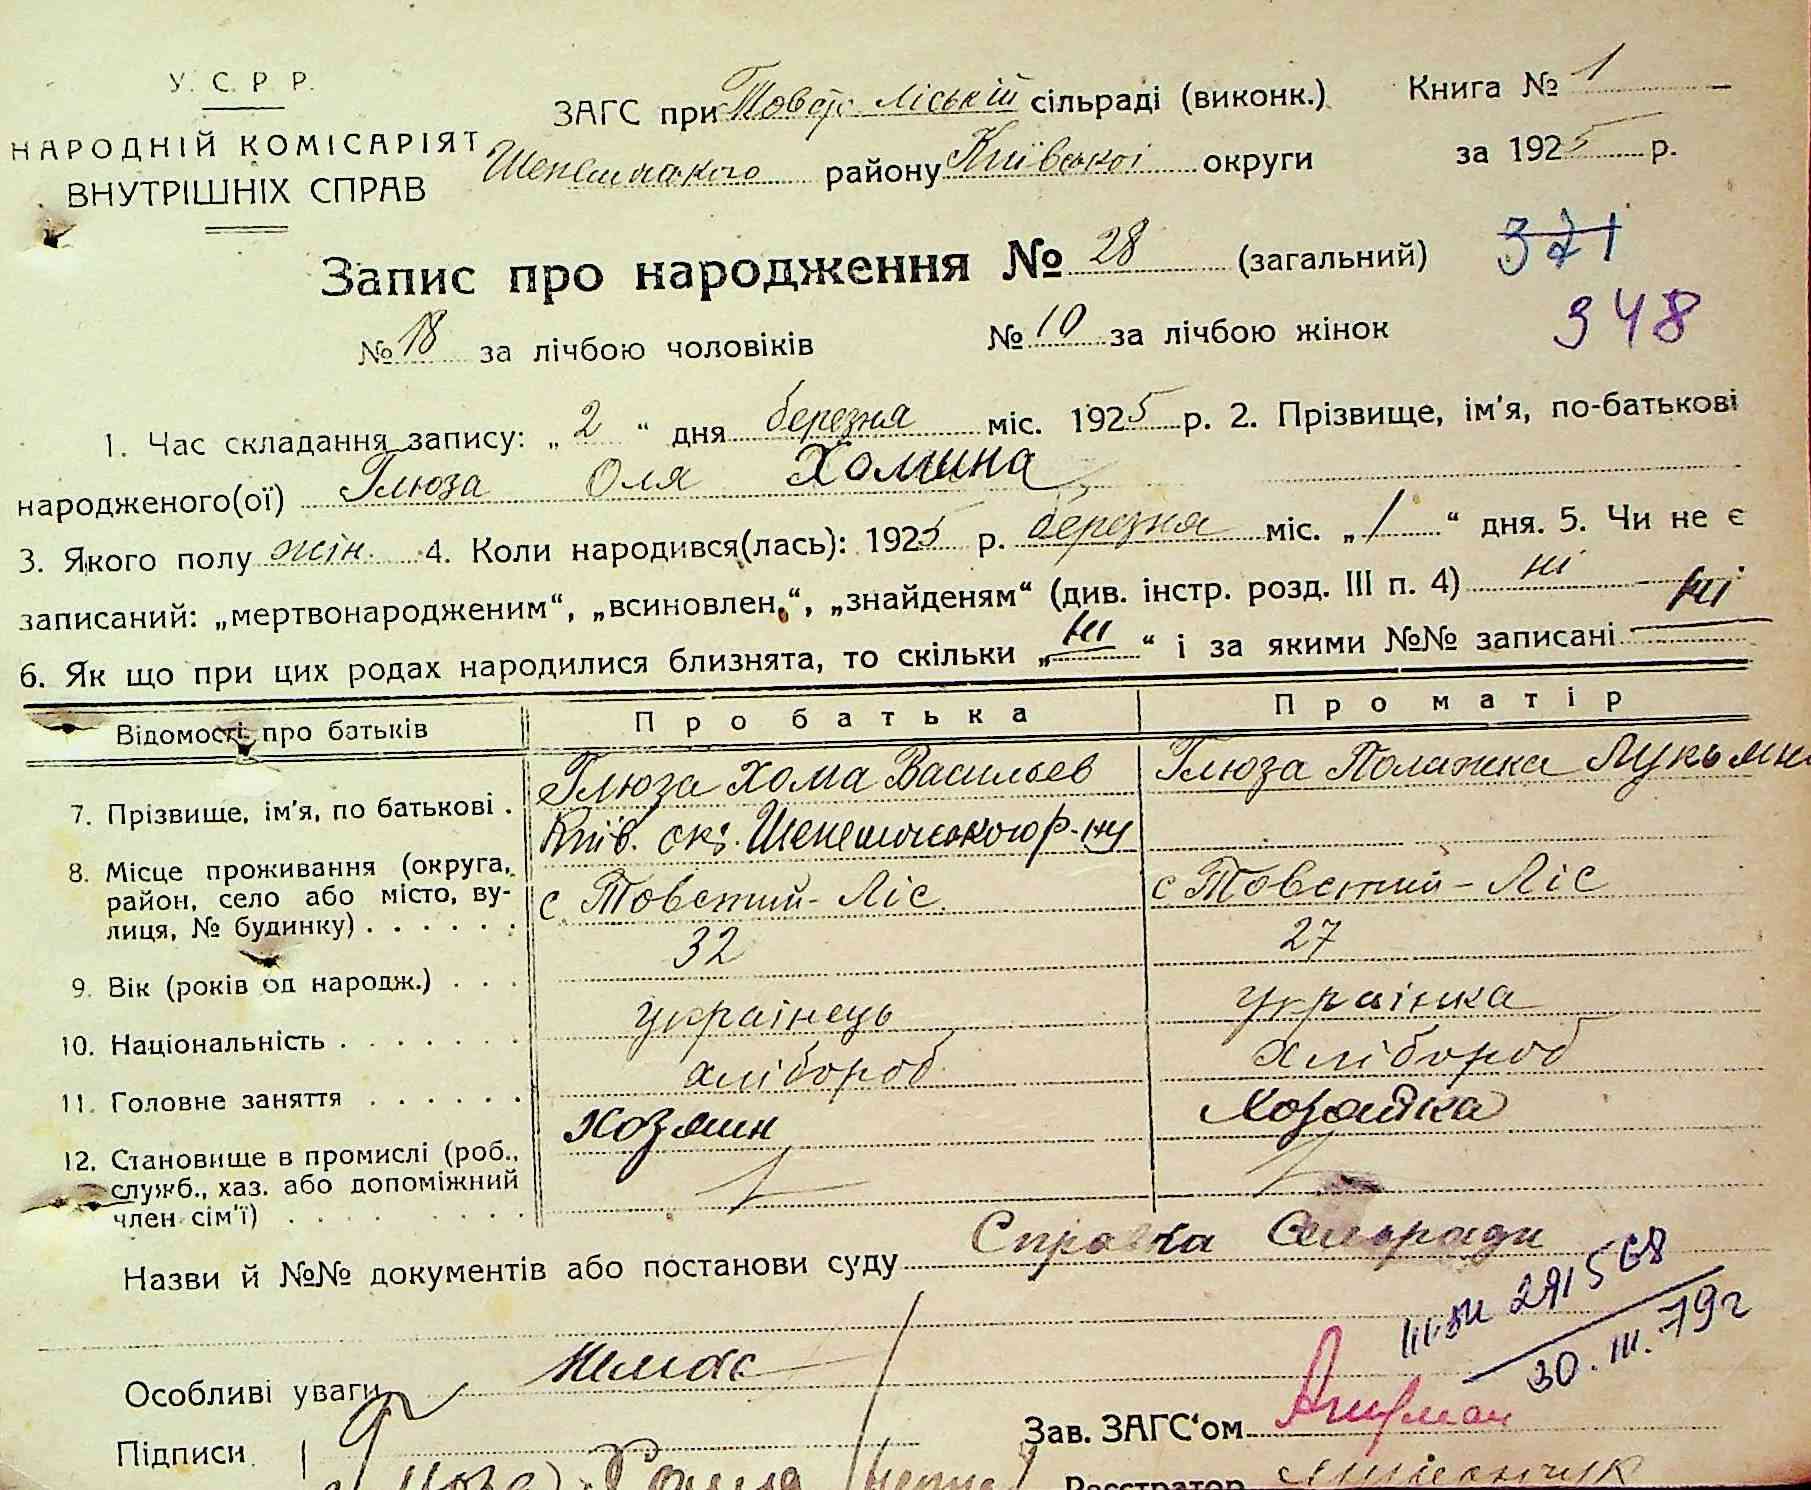 У. С. Р. Р.
НАРОДНІЙ КОМІСАРІЯТ
ВНУТРІШНІХ СПРАВ
ЗАГС при Товсто-ліській сільраді (виконк.)
Шепелицького району Київської округи
Книга № 1
за 1925 р.
Запис про народження № 28 (загальний)
371
348
№ 18 за лічбою чоловіків № 10 за лічбою жінок
1. Час складання запису: „ 2 “ дня березня міс. 1925 р. 2. Прізвище, ім'я, по-батькові
народженого(ої) Глюза Оля Хомина
3. Якого полу жін. 4. Коли народився(лась): 1925 р. березня міс. „ 1 “ дня. 5. Чи не є
записаний: „мертвонародженим“, „всиновлен.“, „знайденям“ (див. інстр. розд. III п. 4) ні
6. Як що при цих родах народилися близнята, то скільки „ ні “ і за якими №№ записані ні
Відомості про батьків Про батька Про матір
7. Прізвище, ім'я, по батькові . Глюза Хома Васильев Глюза Полажка Лукьян
8. Місце проживання (округа, район, село або місто, ву-
лиця, № будинку) . . . . . . Київ. окр. Шепелицького р-ну
с. Товстий-Ліс с Товстий-Ліс
9. Вік (років од народж.) . . . 32 27
10. Національність . . . . . . . українець українка
11. Головне заняття . . . . . . хлібороб хлібороб
12. Становище в промислі (роб., служб., хаз. або допоміжний
член сім'ї) . . . . . . . . . Хозяин Хозяйка
Назви й №№ документів або постанови суду Справка Сельради
291568
30.III.79г
Особливі уваги Немає
Підписи
Зав. ЗАГС'ом
Реєстратор